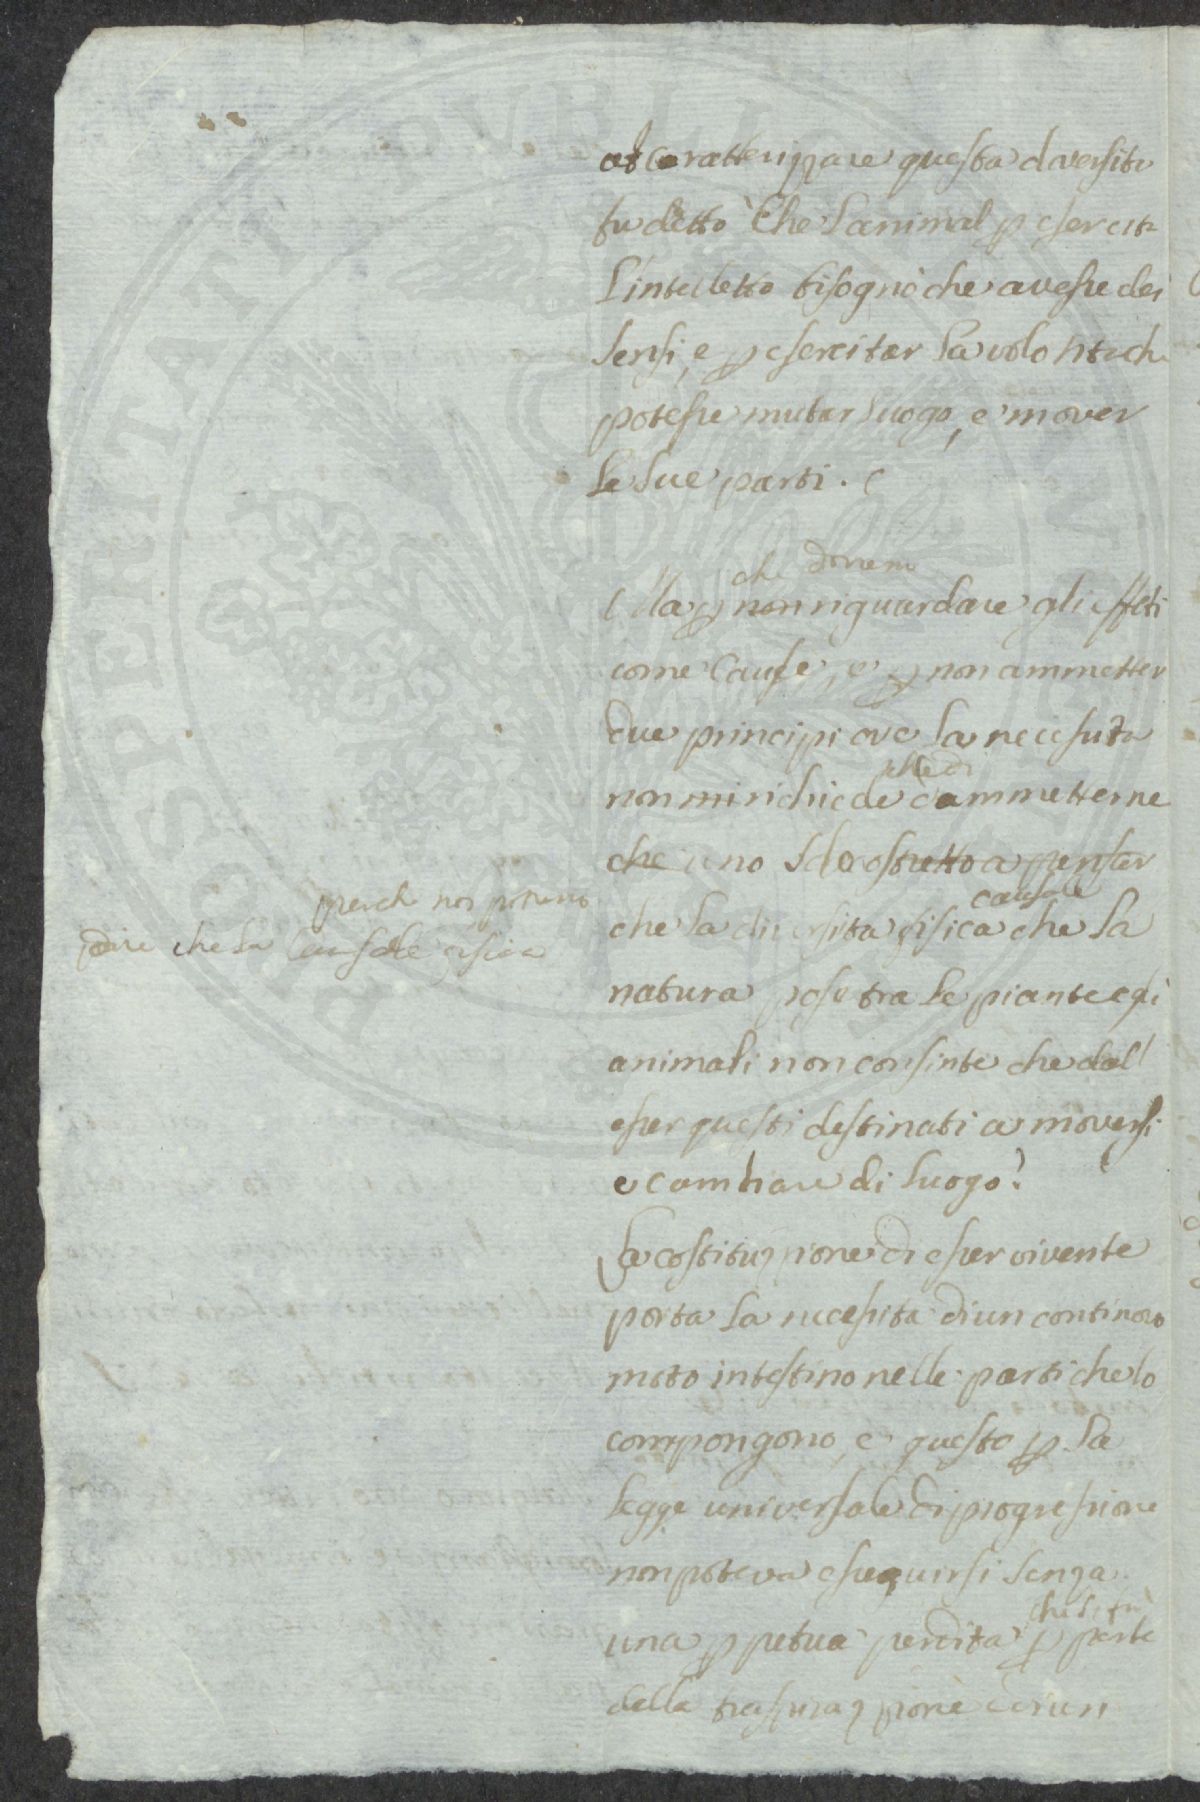 caratterizzare questa diversità
fu detto Che l'animal p esercitar
l'intelletto bisognò che avesse dei
sensi, e p esercitar la volontà che
potesse mutar luogo, e mover
le sue parti. (
che dovem
(Ma p non riguardare gli effetti
come Cause, e p non ammetter
due principi ove la necessità
non mi richiede d'ammetterne
che uno costretto a pensar
causale
che la diversità fisica che la
perche non potremo
dire che la Causale fisica
natura pose tra le piante e gl'
animali non consiste che dall'
esser questi destinati a moversi
e cambiare di luogo?
La costituzione di esser vivente
porta la necessità di un continovo
moto intestino nelle parti che lo
compongono, e questo p la
legge universale di progressione
non poteva eseguirsi senza
una ppetua perdita p parte
della traspirazione